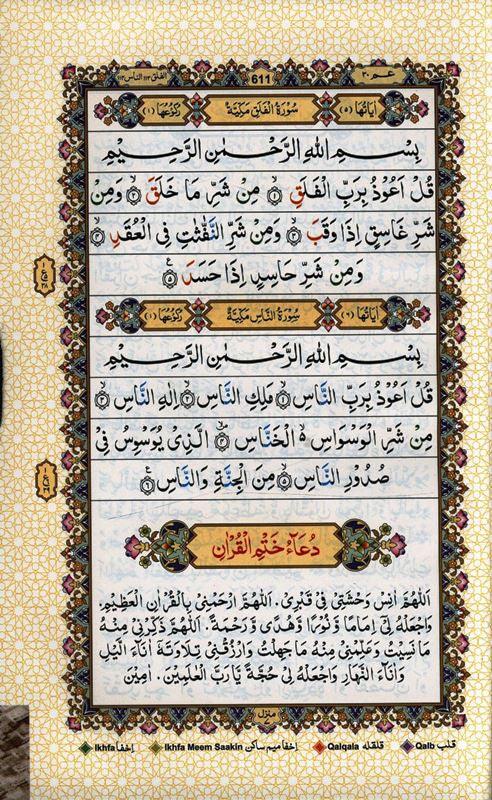 عم ٣٠
611
الفلق ١١٣ الناس ١١٤
اٰيَاتُهَا (٥) سُوْرَةُ الْفَلَقِ مَكِّيَّةٌ رُكُوْعُهَا (١)
بِسْمِ اللهِ الرَّحْمٰنِ الرَّحِيْمِ
قُلْ اَعُوْذُ بِرَبِّ الْفَلَقِ ۝١ مِنْ شَرِّ مَا خَلَقَ ۝٢ وَمِنْ
شَرِّ غَاسِقٍ اِذَا وَقَبَ ۝٣ وَمِنْ شَرِّ النَّفّٰثٰتِ فِى الْعُقَدِ ۝٤
وَمِنْ شَرِّ حَاسِدٍ اِذَا حَسَدَ ۝٥
اٰيَاتُهَا (٦) سُوْرَةُ النَّاسِ مَكِّيَّةٌ رُكُوْعُهَا (١)
بِسْمِ اللهِ الرَّحْمٰنِ الرَّحِيْمِ
قُلْ اَعُوْذُ بِرَبِّ النَّاسِ ۝١ مَلِكِ النَّاسِ ۝٢ اِلٰهِ النَّاسِ ۝٣
مِنْ شَرِّ الْوَسْوَاسِ ۙ الْخَنَّاسِ ۝٤ الَّذِىْ يُوَسْوِسُ فِىْ
صُدُوْرِ النَّاسِ ۝٥ مِنَ الْجِنَّةِ وَالنَّاسِ ۝٦
دُعَاءُ خَتْمِ الْقُرْاٰنِ
اَللّٰهُمَّ اٰنِسْ وَحْشَتِىْ فِىْ قَبْرِىْ. اَللّٰهُمَّ ارْحَمْنِىْ بِالْقُرْاٰنِ الْعَظِيْمِ.
وَاجْعَلْهُ لِىْ اِمَامًا وَّنُوْرًا وَّهُدًى وَّرَحْمَةً. اَللّٰهُمَّ ذَكِّرْنِىْ مِنْهُ
مَا نَسِيْتُ وَعَلِّمْنِىْ مِنْهُ مَا جَهِلْتُ وَارْزُقْنِىْ تِلَاوَتَهٗ اٰنَاءَ الَّيْلِ
وَاٰنَاءَ النَّهَارِ وَاجْعَلْهُ لِىْ حُجَّةً يَّا رَبَّ الْعٰلَمِيْنَ. اٰمِيْنَ
منزل
Ikhfa اِخفا Ikhfa Meem Saakin اِخفا میم ساکن Qalqala قلقله Qalb قلب